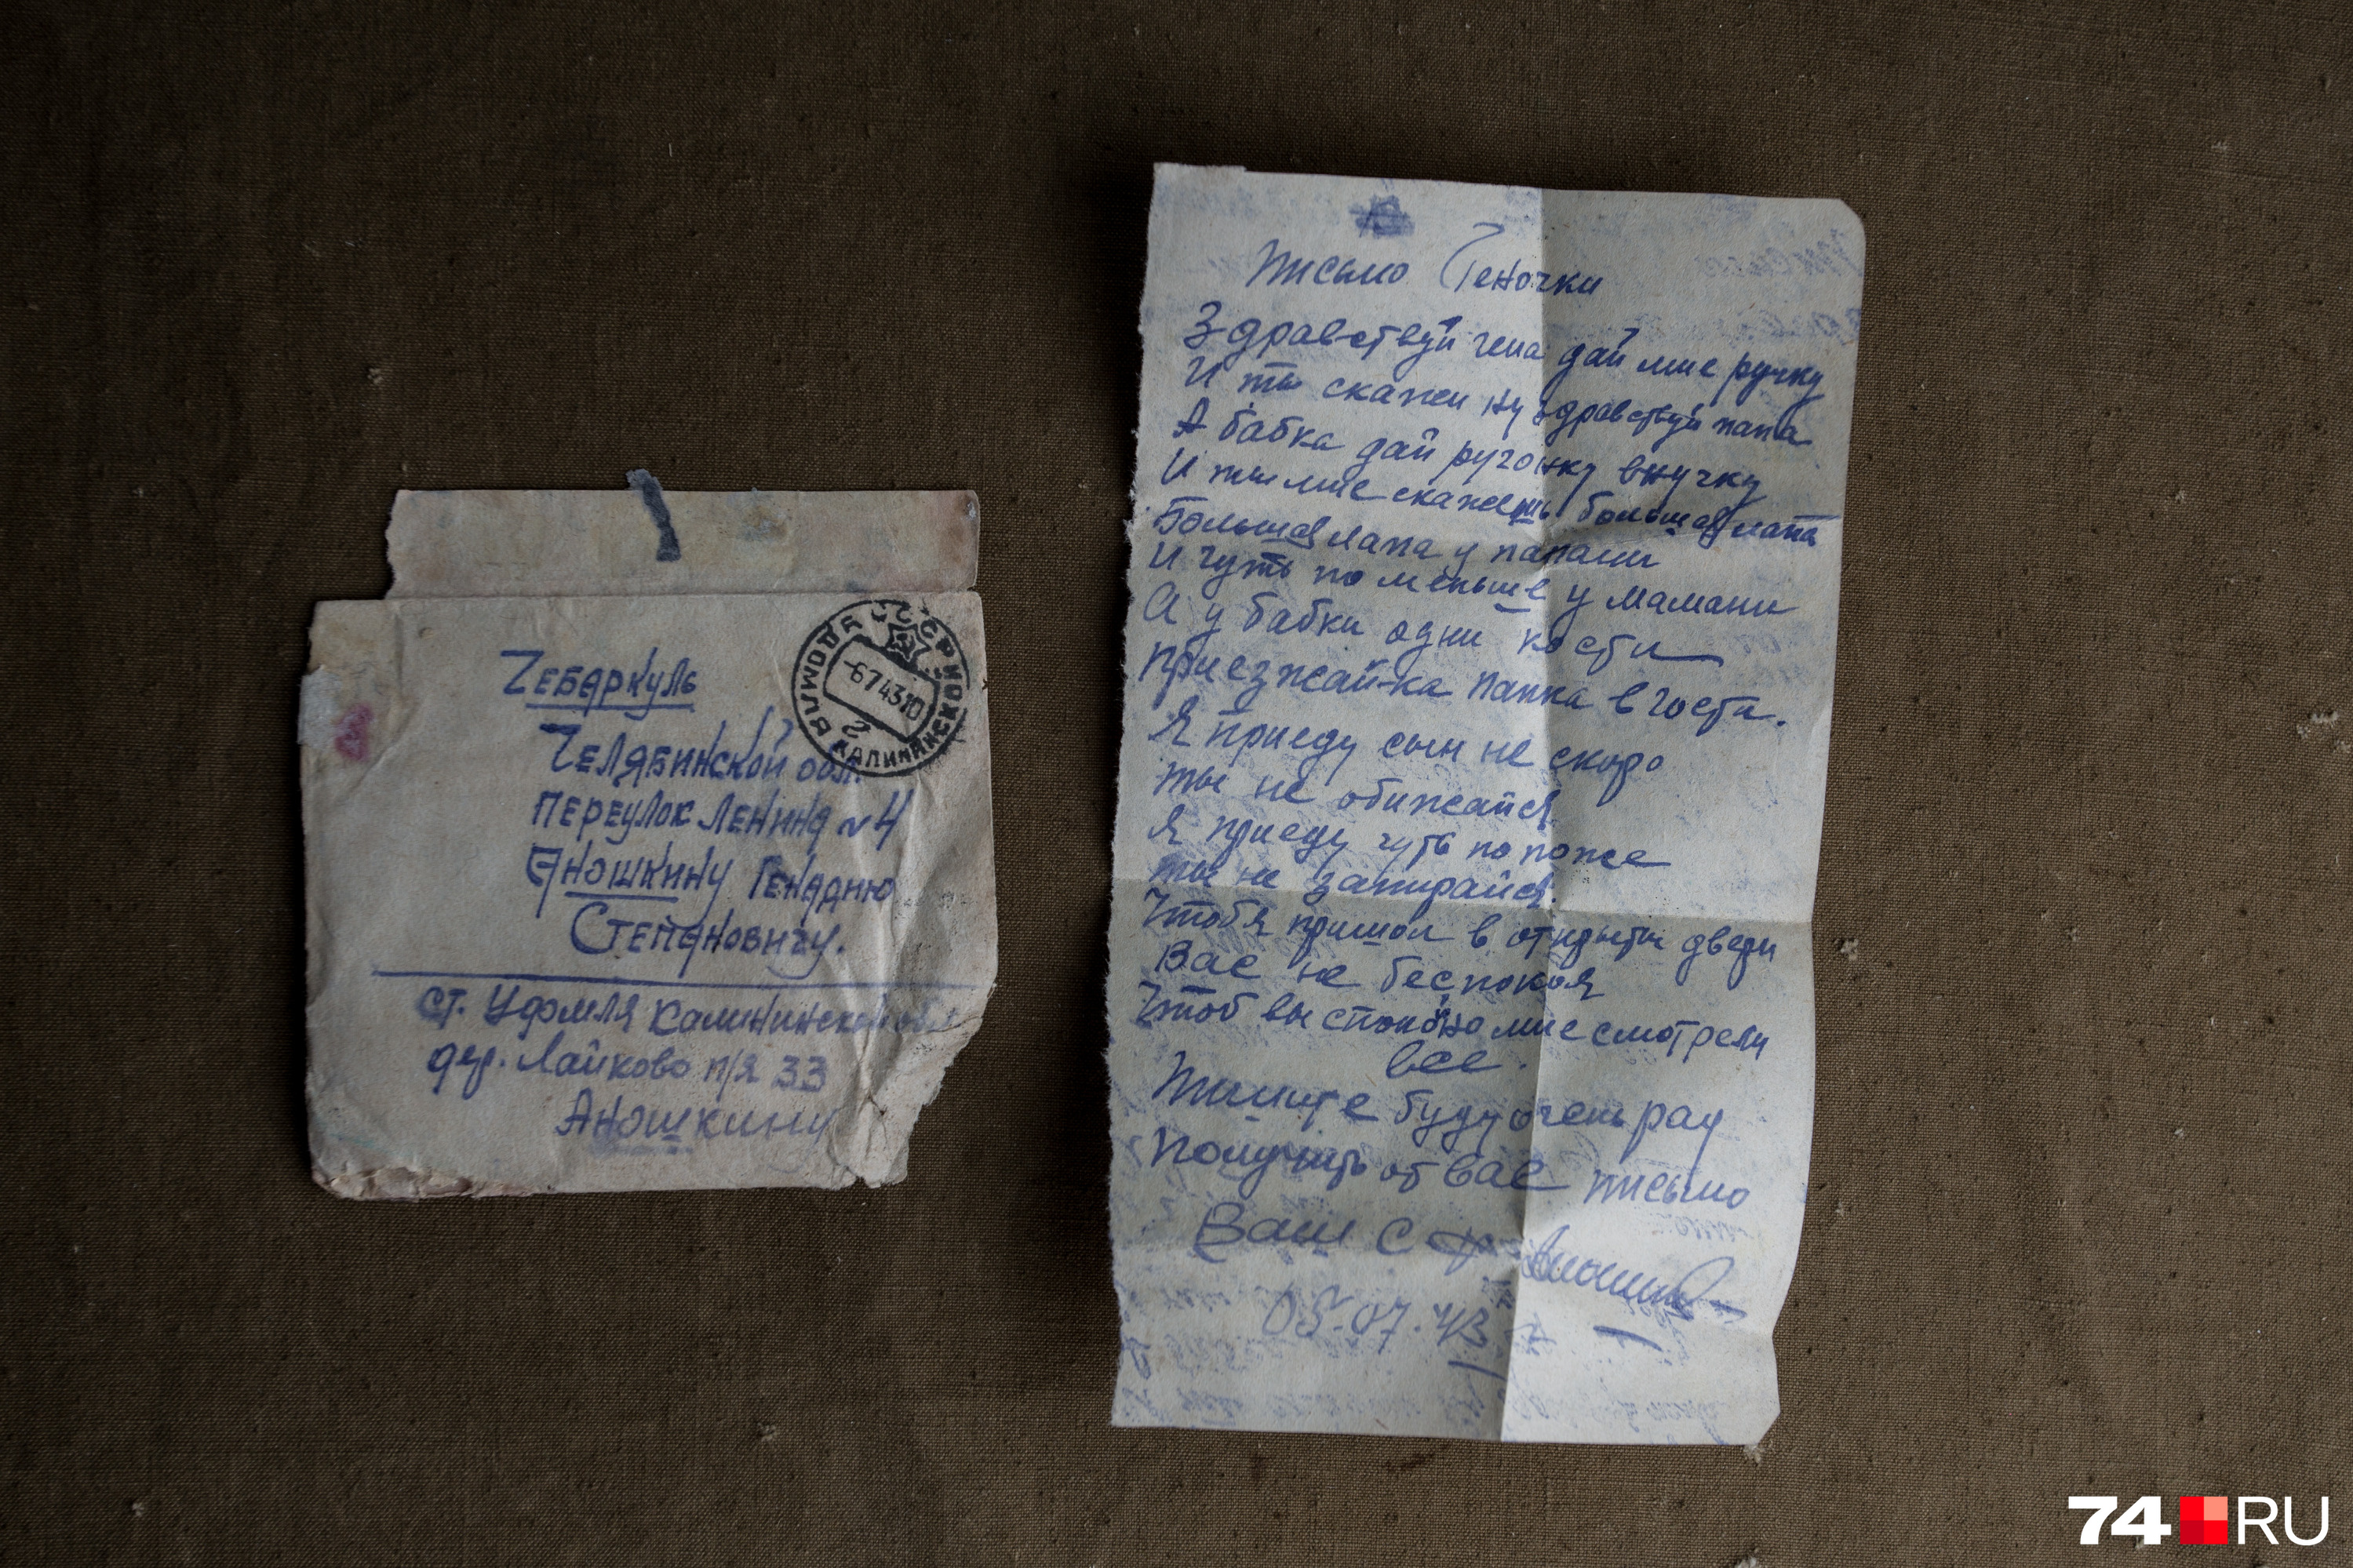 Чебаркуль
Челябинской обл.
переулок Ленина №4
Аношкину Генадию
Степановичу.
ст. Уфмля Калининской
дер. Лайково п/я 33
Аношкину
СССР
-674310
2
Письмо Геночки
Здравствуй гена дай мне ручку
И ты скажи ну здравствуй папа
А бабка дай ручонку внучку
И ты мне скажешь большая лапа
Большая лапа у папани
И чуть по меньше у мамани
А у бабки одни кости
Приезжай-ка папка в гости.
Я приеду сын не скоро
ты не обижайся.
Я приеду чуть по позже
ты не запирайся.
Чтоб я пришол в открыты двери
Вас не беспокоя
Чтоб вы спокойно мне смотрели
все.
Пишите буду очень рад
Получить от вас письмо
Ваш С
05.07.43
74 RU